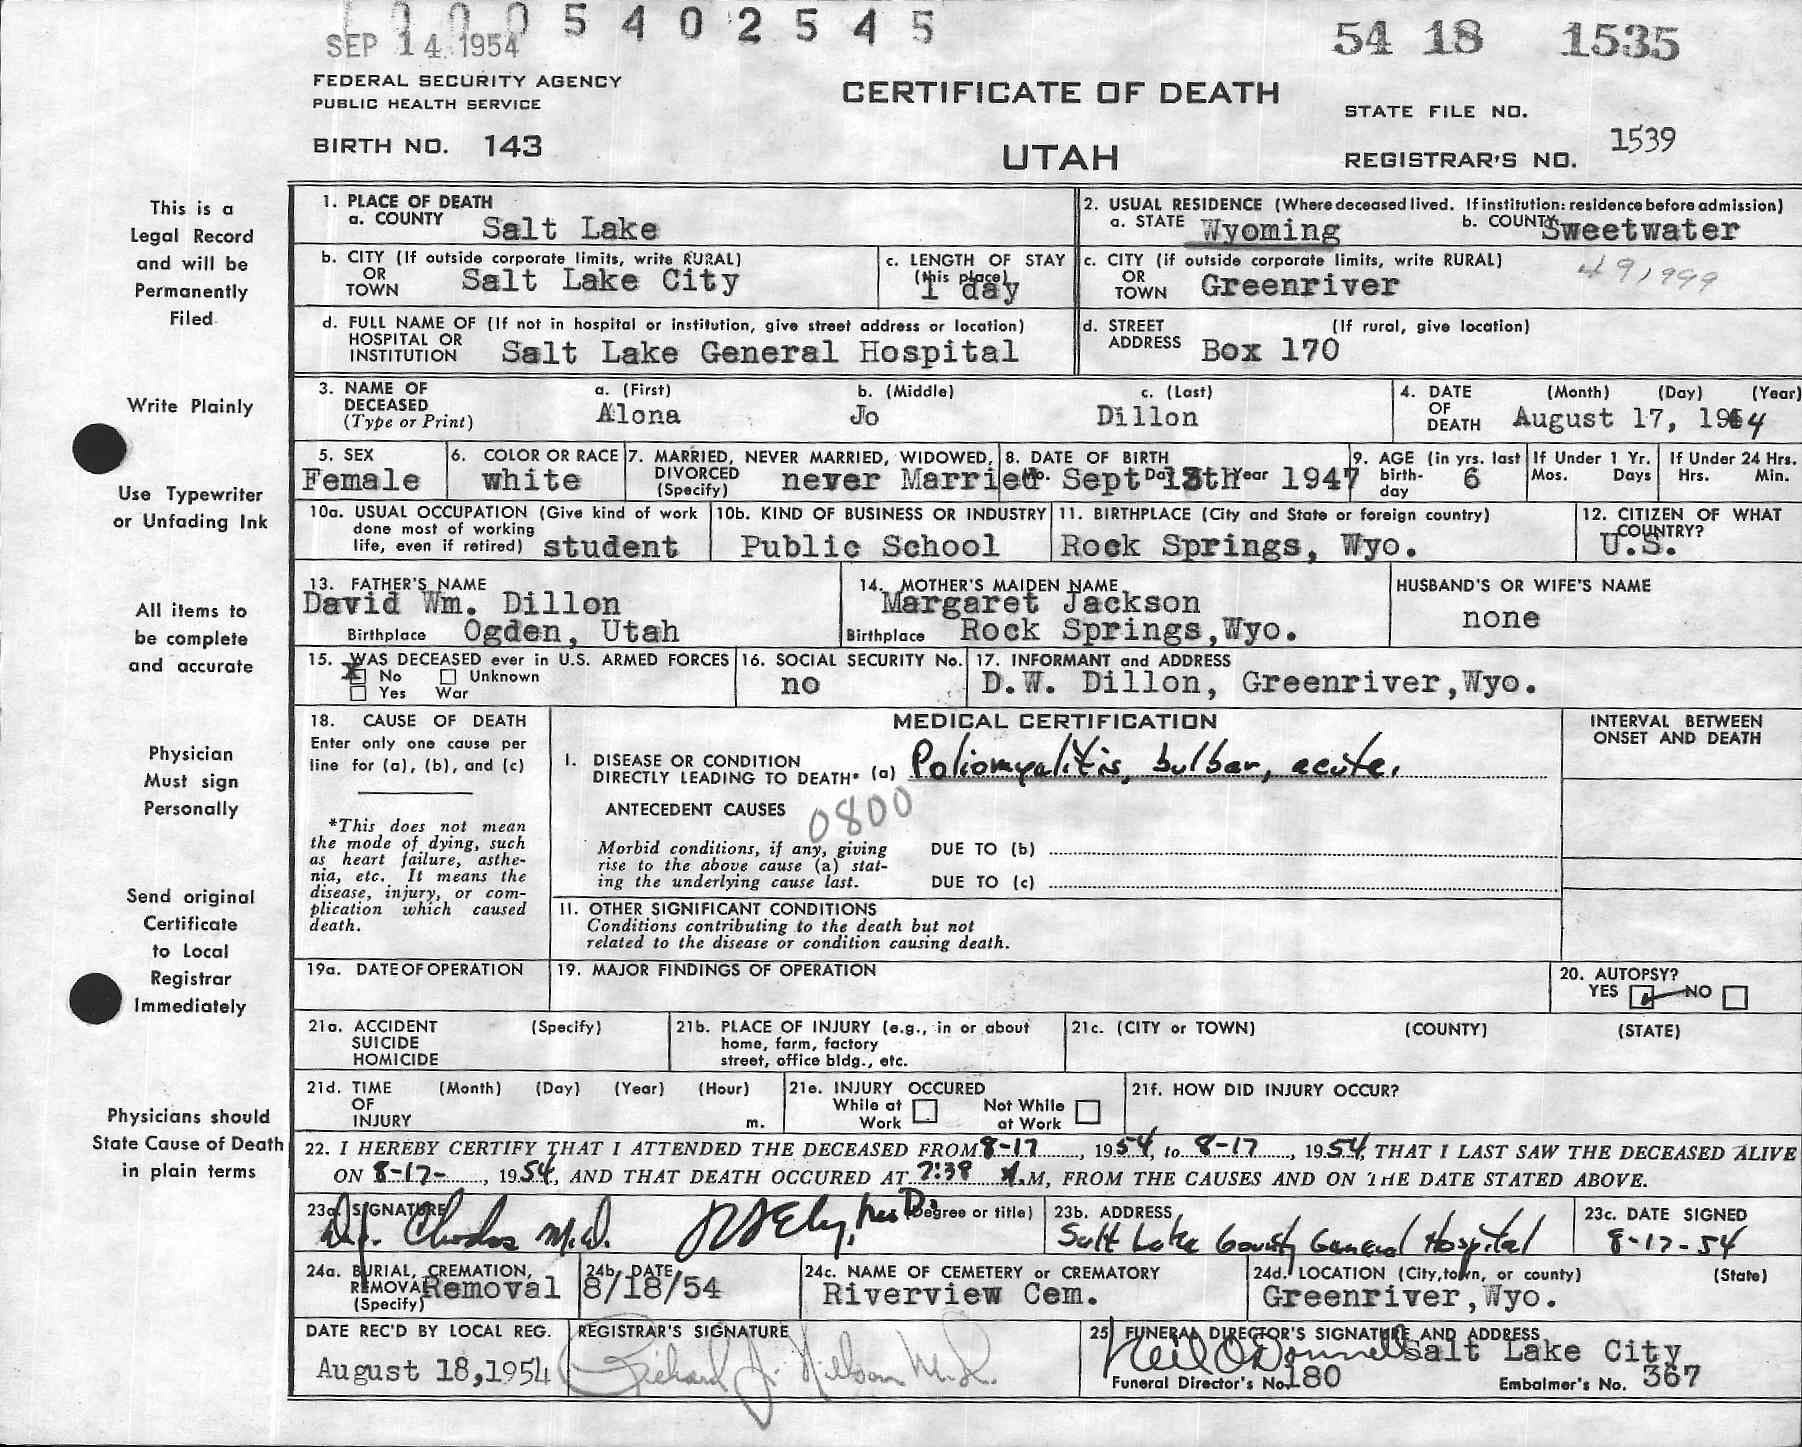 0005402545
SEP 14 1954
54 18 1535
FEDERAL SECURITY AGENCY
PUBLIC HEALTH SERVICE
CERTIFICATE OF DEATH
STATE FILE NO.
BIRTH NO. 143
UTAH
REGISTRAR'S NO. 1539
This is a
Legal Record
and will be
Permanently
Filed
Write Plainly
Use Typewriter
or Unfading Ink
All items to
be complete
and accurate
Physician
Must sign
Personally
Send original
Certificate
to Local
Registrar
Immediately
Physicians should
State Cause of Death
in plain terms
1. PLACE OF DEATH
a. COUNTY Salt Lake
2. USUAL RESIDENCE (Where deceased lived. If institution: residence before admission)
a. STATE Wyoming b. COUNTY Sweetwater
b. CITY (If outside corporate limits, write RURAL)
OR
TOWN Salt Lake City
c. LENGTH OF STAY
(this place)
1 day
c. CITY (if outside corporate limits, write RURAL)
OR
TOWN Greenriver
491999
d. FULL NAME OF (If not in hospital or institution, give street address or location)
HOSPITAL OR
INSTITUTION Salt Lake General Hospital
d. STREET (If rural, give location)
ADDRESS Box 170
3. NAME OF
DECEASED
(Type or Print)
a. (First) b. (Middle) c. (Last)
Alona Jo Dillon
4. DATE (Month) (Day) (Year)
OF
DEATH August 17, 1954
5. SEX
Female
6. COLOR OR RACE
white
7. MARRIED, NEVER MARRIED, WIDOWED,
DIVORCED
(Specify) never Married
8. DATE OF BIRTH
Mo. Sept Day 13th Year 1947
9. AGE (in yrs. last
birth-
day 6
If Under 1 Yr.
Mos. Days
If Under 24 Hrs.
Hrs. Min.
10a. USUAL OCCUPATION (Give kind of work
done most of working
life, even if retired) student
10b. KIND OF BUSINESS OR INDUSTRY
Public School
11. BIRTHPLACE (City and State or foreign country)
Rock Springs, Wyo.
12. CITIZEN OF WHAT
COUNTRY?
U.S.
13. FATHER'S NAME
David Wm. Dillon
Birthplace Ogden, Utah
14. MOTHER'S MAIDEN NAME
Margaret Jackson
Birthplace Rock Springs, Wyo.
HUSBAND'S OR WIFE'S NAME
none
15. WAS DECEASED ever in U.S. ARMED FORCES
X No Unknown
Yes War
16. SOCIAL SECURITY No.
no
17. INFORMANT and ADDRESS
D.W. Dillon, Greenriver, Wyo.
18. CAUSE OF DEATH
Enter only one cause per
line for (a), (b), and (c)
*This does not mean
the mode of dying, such
as heart failure, asthe-
nia, etc. It means the
disease, injury, or com-
plication which caused
death.
MEDICAL CERTIFICATION
I. DISEASE OR CONDITION
DIRECTLY LEADING TO DEATH* (a) Poliomyalitis, bulbar, acute.
ANTECEDENT CAUSES
0800
Morbid conditions, if any, giving
rise to the above cause (a) stat-
ing the underlying cause last.
DUE TO (b)
DUE TO (c)
II. OTHER SIGNIFICANT CONDITIONS
Conditions contributing to the death but not
related to the disease or condition causing death.
INTERVAL BETWEEN
ONSET AND DEATH
19a. DATE OF OPERATION
19. MAJOR FINDINGS OF OPERATION
20. AUTOPSY?
YES NO
21a. ACCIDENT (Specify)
SUICIDE
HOMICIDE
21b. PLACE OF INJURY (e.g., in or about
home, farm, factory
street, office bldg., etc.
21c. (CITY or TOWN) (COUNTY) (STATE)
21d. TIME (Month) (Day) (Year) (Hour)
OF
INJURY m.
21e. INJURY OCCURED
While at Work
Not While at Work
21f. HOW DID INJURY OCCUR?
22. I HEREBY CERTIFY THAT I ATTENDED THE DECEASED FROM 8-17, 1954, to 8-17, 1954, THAT I LAST SAW THE DECEASED ALIVE
ON 8-17-, 1954, AND THAT DEATH OCCURED AT 7:38 A.M, FROM THE CAUSES AND ON THE DATE STATED ABOVE.
23a. SIGNATURE (Degree or title)
Chodos M.D.
23b. ADDRESS
Salt Lake County General Hospital
23c. DATE SIGNED
8-17-54
24a. BURIAL, CREMATION,
REMOVAL Removal
(Specify)
24b. DATE
8/18/54
24c. NAME OF CEMETERY or CREMATORY
Riverview Cem.
24d. LOCATION (City, town, or county) (State)
Greenriver, Wyo.
DATE REC'D BY LOCAL REG.
August 18, 1954
REGISTRAR'S SIGNATURE
Richard J. Nelson M.D.
25 FUNERAL DIRECTOR'S SIGNATURE AND ADDRESS
Neil O'Donnell Salt Lake City
Funeral Director's No. 180 Embalmer's No. 367